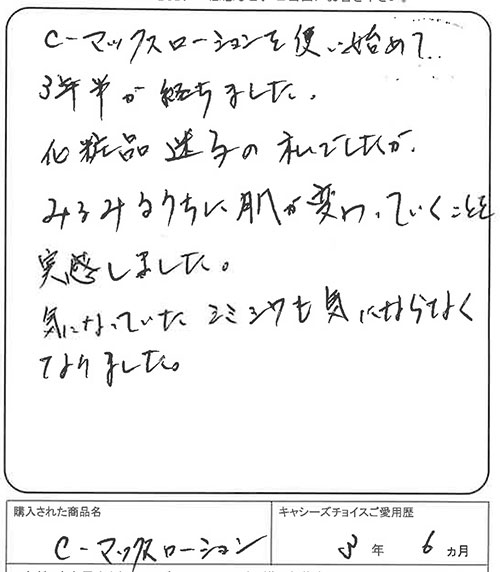 C-マックスローションを使い始めて
3年半が経ちました。
化粧品迷子の私でしたが、
みるみるうちに肌が変わっていくことを
実感しました。
気になっていたシミシワも気にならなく
なりました。
購入された商品名
キャシーズチョイスご愛用歴
C-マックスローション
3年 6ヵ月